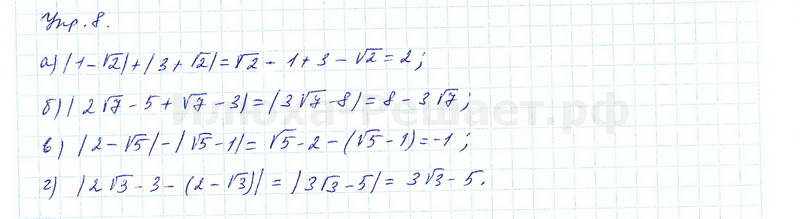 Упр. 8.
а) |1-√2|+|3+√2|=√2-1+3-√2=2;
б) |2√7-5+√7-3|=|3√7-8|=8-3√7;
в) |2-√5|-|√5-1|=√5-2-(√5-1)=-1;
г) |2√3-3-(2-√3)|=|3√3-5|=3√3-5.
Илюха-Решает.рф